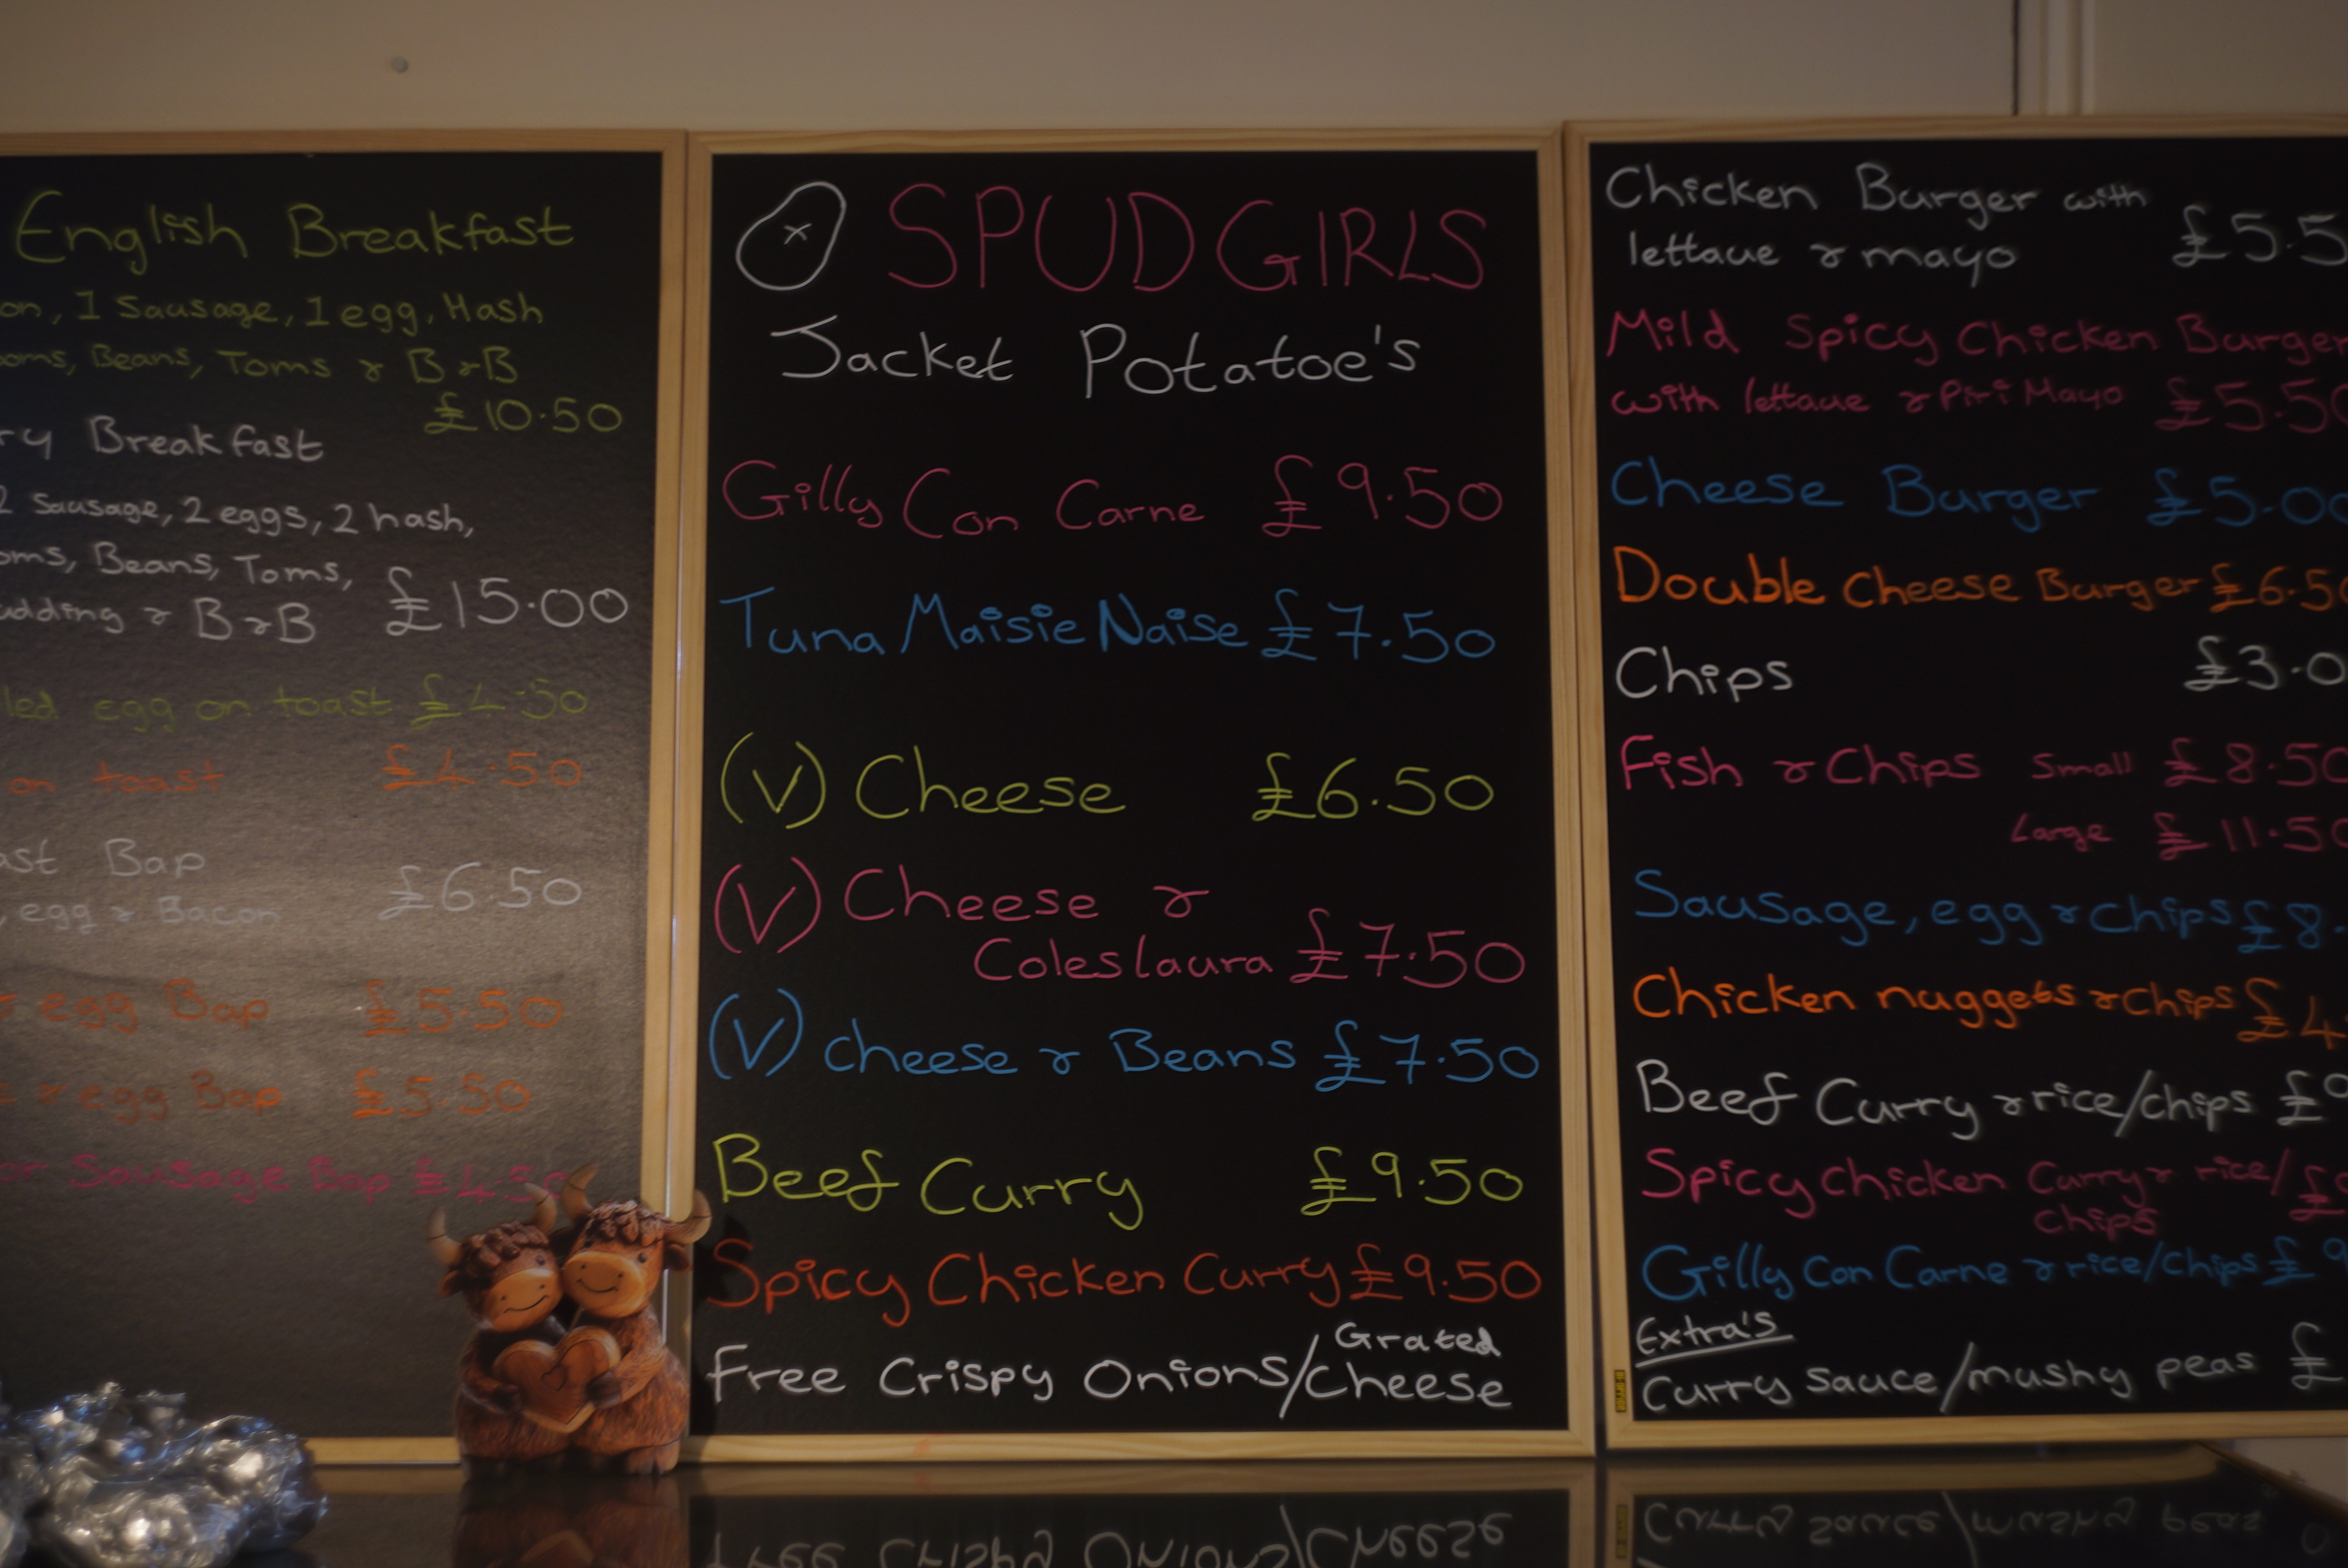 English Breakfast
1 Sausage, 1 egg, Hash
Beans, Toms & B&B
£10.50
Breakfast
2 Sausage, 2 eggs, 2 hash,
Beans, Toms,
& B&B £15.00
egg on toast £4.50
on toast £4.50
Bap
egg & Bacon £6.50
egg Bap £5.50
& egg Bap £5.50
or Sausage Bap £4.50
SPUD GIRLS
Jacket Potatoe's
Gilly Con Carne £9.50
Tuna Maisie Naise £7.50
(V) Cheese £6.50
(V) Cheese &
Coleslaura £7.50
(V) cheese & Beans £7.50
Beef Curry £9.50
Spicy Chicken Curry £9.50
Grated
Free Crispy Onions/Cheese
Chicken Burger with
lettaue & mayo £5.5
Mild Spicy Chicken Burger
with lettaue & Piri Mayo £5.50
Cheese Burger £5.00
Double Cheese Burger £6.50
Chips £3.0
Fish & Chips Small £8.50
Large £11.50
Sausage, egg & Chips £8.
Chicken nuggets & Chips £4
Beef Curry & rice/chips £9
Spicy Chicken Curry & rice/
chips
Gilly Con Carne & rice/chips £9
Extra's
Curry sauce/mushy peas £